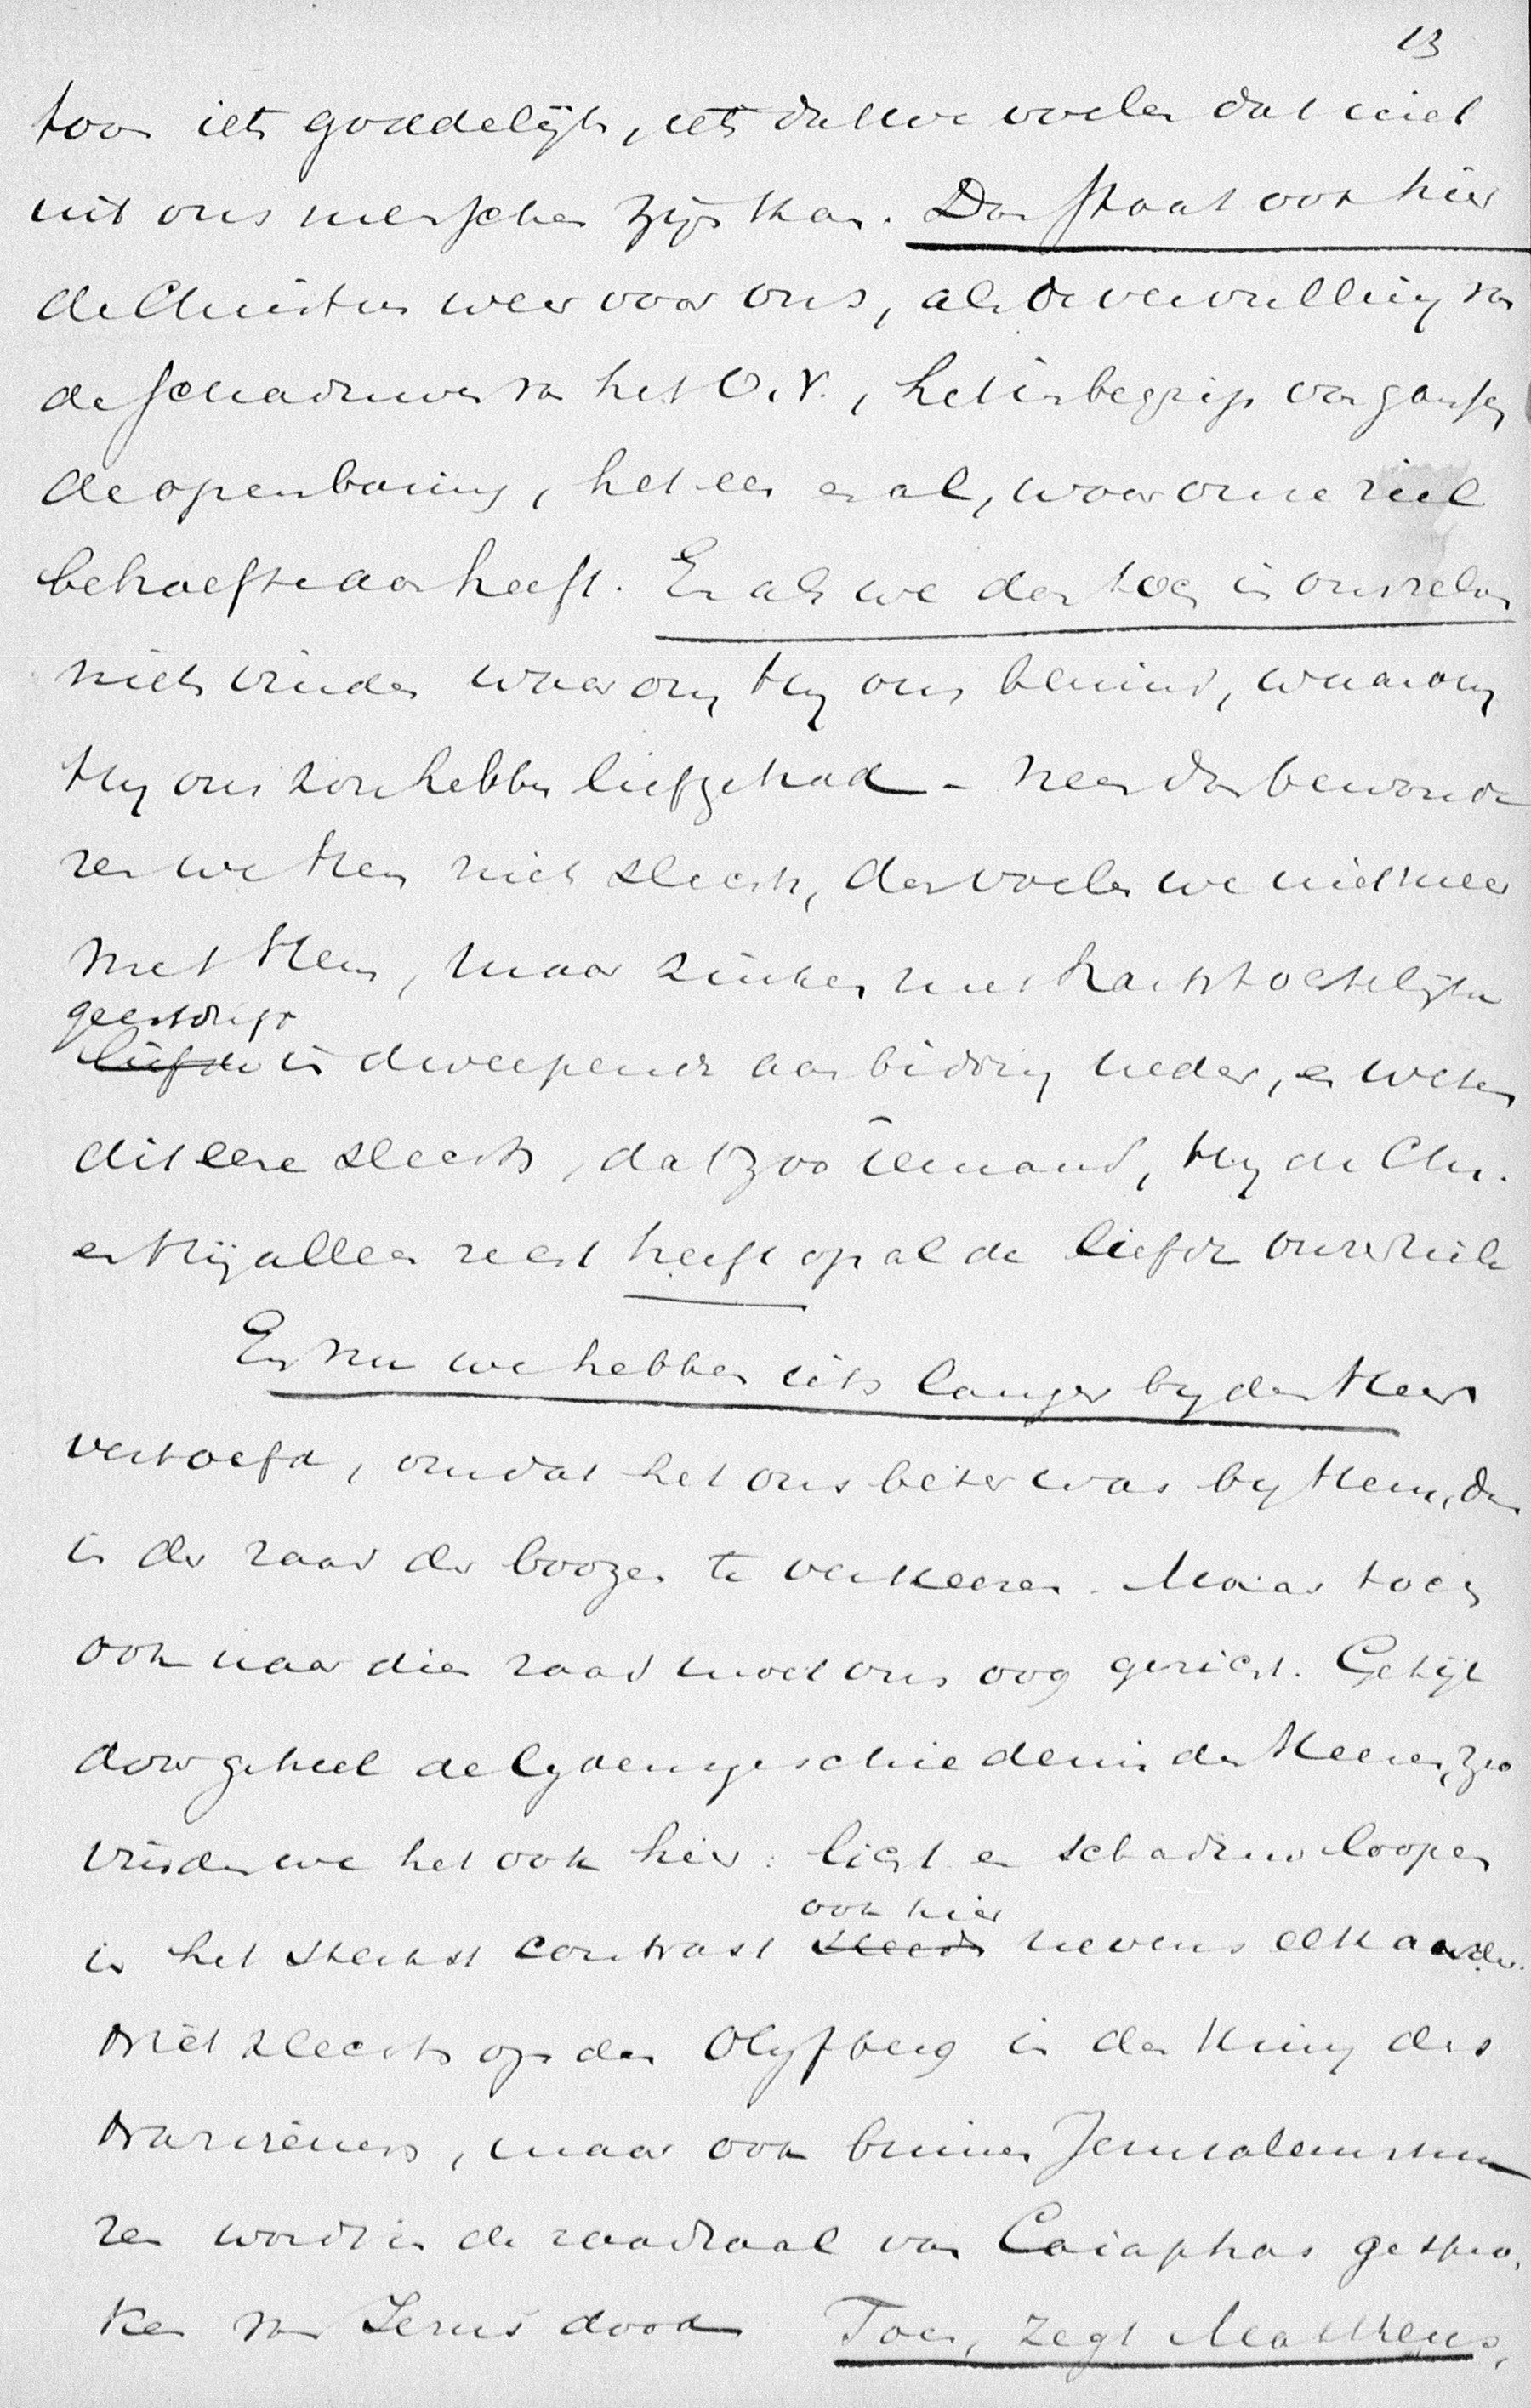 13
toon iets goddelijks, iets dat we voelen dat niet
uit ons menschen zijn kan. Dan staat ook hier
de Christus weer voor ons, als de vervulling van
de schaduwen van het O.V., het inbegrip van gansch
de openbaring, het een en al, waar onze ziel
behoefte aan heeft. En als we dan toch in ons zelven
niets vinden waarom Hij ons bemind, waarom
Hij ons zou hebben liefgehad – neen dan bewonde
ren we Hem niet slechts, dan voelen we niet meer
met Hem, maar zinken met hartstochtelijke
geestdrift
liefde in dweepende aanbidding neder, en weten
dit eene slechts, dat zóó iemand, Hij de Chr.
en Hij alleen recht heeft op al de liefde onzer ziele
En nu we hebben iets langer bij den Heer
vertoefd, omdat het ons beter was bij Hem, dan
in den raad der boozen te verkeeren. Maar toch
ook naar dien raad moet ons oog gericht. Gelijk
door geheel de lijdensgeschiedenis des Heeren, zoo
vinden we het ook hier: licht en schaduw loopen
ook hier
in het sterkst contrast steeds nevens elkaander.
Niet slechts op den Olijfberg in den kring des
Nazireners, maar ook binnen Jerusalems mu
ren wordt in de raadzaal van Caiaphas gespro-
ken van Jezus' dood. Toen, zegt Mattheus,